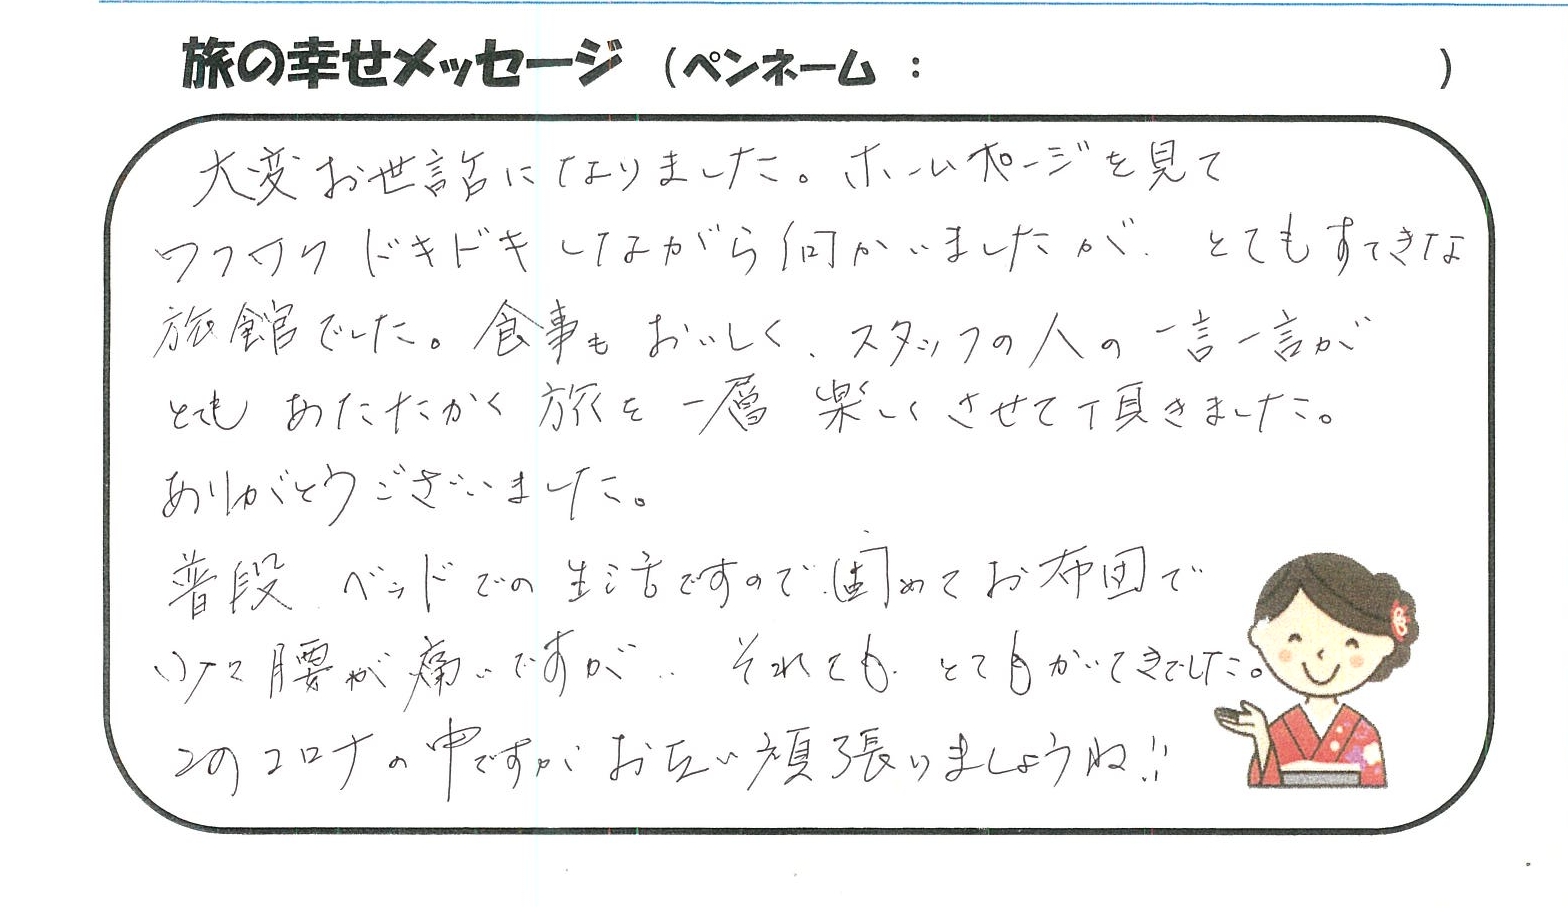 旅の幸せメッセージ (ペンネーム : )
大変お世話になりました。ホームページを見て
ワクワクドキドキしながら伺かいましたが、とてもすてきな
旅館でした。食事もおいしく、スタッフの人の一言一言が
とてもあたたかく旅を一層楽しくさせて頂きました。
ありがとうございました。
普段ベッドでの生活ですので、固めてお布団で
腰が痛いですが、それでもとても
このコロナの中ですがお互い頑張りましょうね!!